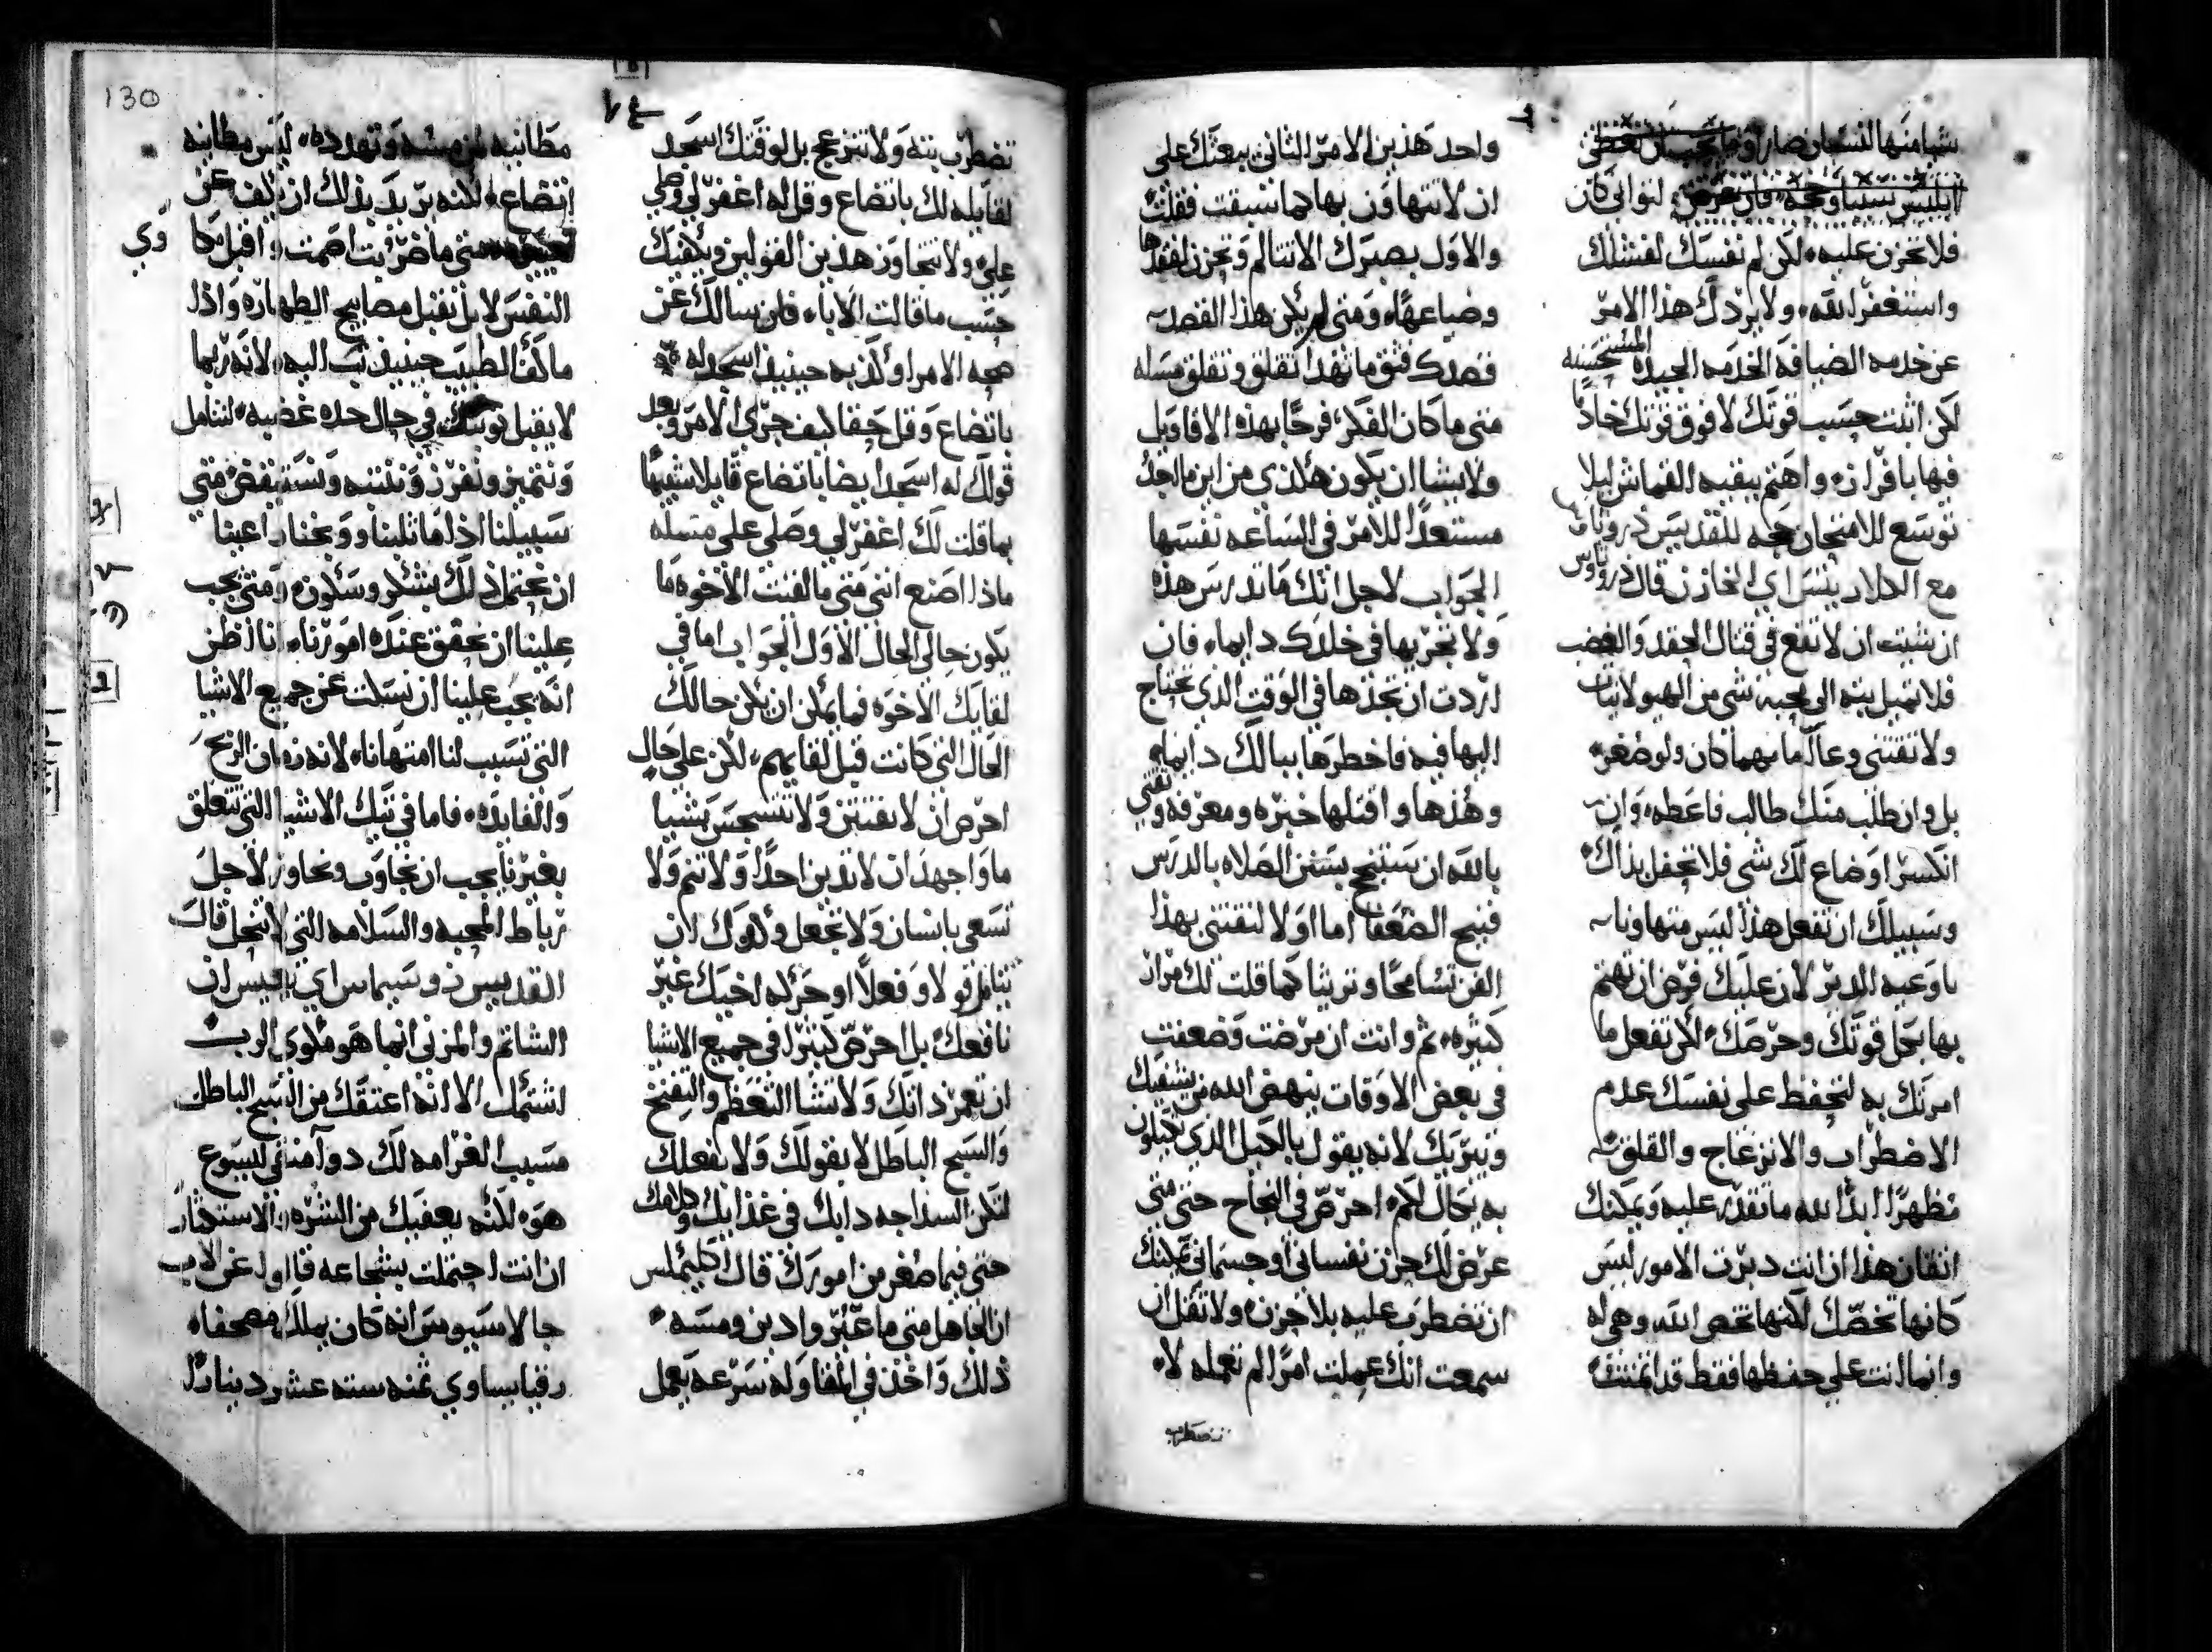 شيا منها لنسيان ضارا وما يجب ان تعطي
ابليس سببا وحجه فان عرض لتواني كان
فلا تحزن عليه لكن لم نفسك لفشلك
واستغفر الله ولا يردك هذا الامر
عن خدمه الضيافه الخدمه الجيده المستحسنه
لكن اثبت حسب قوتك لا فوق قوتك خادمًا
فيها بافراز واهتم ببقيه القماش ليلا
توسع للامتحان حجه للقديس ذروثاوس
مع الدلاد ينس اي الخازن قال ذروثاوس
ان شيت ان لا تقع في قتال الحقد والغضب
فلا تميل بته الى محبة شي من الهيولانيات
ولا تقتني وعآ ما مهما كان ولو صغر
بل وان طلب منك طالب فاعطه وان
انكسر او ضاع لك شي فلا تحفل بذاك
وسبيلك ان تفعل هذا ليس متهاونا
باوعيه الدير لان عليك فرض ان تهتم
بها بجل قوتك وحرصك لكن تفعل ما
امرتك به لتحفظ على نفسك عدم
الاضطراب والانزعاج والقلق
مظهرًا ابدًا لله ما تقدر عليه ويمكنك
اتقان هذا ان انت دبرت الامور ليس
كانها تخصك لكنها تخص الله وهي له
وانما انت على حفظها فقط قد اتمنت
واحد هذين الامر الثاني يبعثك على
ان لا تتهاون بها كما سبقت فقلت
والاول يصيرك الا تتالم وتحزن لفقدها
وضياعها ومتى لم يكن هذا القصد
قصدك فثق ما تهدا تقلق وتقلق مسله
متى ما كان الفكر فرحًا بهذه الاقاويل
ولا يشا ان يكون هكذي من اين ما اجد
مستعدًا للامر في الساعه نفسها
الجواب لاجل انك ما تدرس هذه
ولا تجريها في خلدك دايما فان
اردت ان تجدها في الوقت الذي تحتاج
اليها فيه فاخطرها ببالك دايما
وهذها واقتلها خبره ومعرفه وثقتي
بالله ان يستنجح يسنن الصلاه بالدرس
قبيح الضعفا اما اولا لنقتني بهذا
الفن تسامحًا وتريثا كما قلت لك مرار
كثيره ثم وانت ان مرضت وضعفت
في بعض الاوقات ينهض الله من يشفيك
ويبريك لانه يقول بالكيل الذي تكيلون
به يكال لكم احرص في النجاح حتى متى
عرض لك حزن نفساني او جسماني يمكنك
ان تضطرب عليه بلا حزن ولا ثقل ان
سمعت انك عملت امرًا لم تعمله لا
تضطرب
تضطرب بته ولا تنزعج بل لوقتك اسجد
لقايله لك باتضاع وقل له اغفر لي وصلي
علي ولا تتجاوز هذين القولين ويكفيك
حسب ما قالت الابا فان سالك عن
صحه الامر او كذبه حينيذ اسجد له
باتضاع وقل حقا كيف جرى الامر وبعد
قولك له اسجد ايضا باتضاع قايلا شبيهًا
بما قلت لك اغفر لي وصلي علي مسله
ماذا اصنع انني متى ما لقيت الاخوه ما
يكون حالي الحال الاول الجواب اما في
لقايك الاخوه فما يمكن ان يكن حالك
الحال التي كانت قبل لقايهم لكن على حال
احرص ان لا تفتتن ولا تستحسن شيا
ما واجهد ان لا تدين احدًا ولا تنم ولا
تسعى بانسان ولا تجعل وكدك ان
تتامل قولا وفعلًا او حركه لخيك غير
نافعك بل احرص كثيرًا في جميع الاشيا
ان تعزز ذاتك ولا تشا التعظم والتفنخ
والسبح الباطل لا بقولك ولا بفعلك
لتكن السذاجه دايك في غذايك وكلامك
حتى فيما صغر من امورك قال اكليمكس
ان الفاهل متى ما عير وادين ومسه
ذلك واخذ في المفاوله سرعه يعمل
مطانيه لمن مسه وتهدده ليس مطانيه
اتضاع لكنه يريد بذلك ان يكف عن
متى ما ضربت اصمت واقبل مكاوي
النفس لا بل تقبل مصابيح الطهاره واذا
ما كف الطبيب حينيذ تب اليه لانه ربما
لا يقبل توبتك في حال حده غضبه لنتامل
ونتميز ونفرز ونفتش ونستنفض متى
سبيلنا اذا ما ثلبنا ووبخنا واعبنا
ان نحتمل ذلك بشكر وسكون ومتى يجب
علينا ان نحقق عنده امورنا انا اظن
انه يجب علينا ان نسكت عن جميع الاشيا
التي تسبب لنا امتهانا لانه زمان الربح
والفايده فاما في تيك الاشيا التي تتعلق
بغيرنا يجب ان نجاوب ونحاور لاجل
رباط المحبه والسلامه التي لا تنحل قال
القديس ذوسيماس اي باقيس ان
الشاتم والمزني انما هو مكوي الرب
اشتمك الا انه اعتقك من السبح الباطل
مسبب الغرامه لك دوآ منقي ليسوع
هو لكنه يعفيك من الشره الاستكثار
ان انت احتملت بشجاعه قالوا عن الاب
جالاسيوس انه كان يملك مصحفا
رقيا يساوي ثمنه سته عشر دينارًا
130